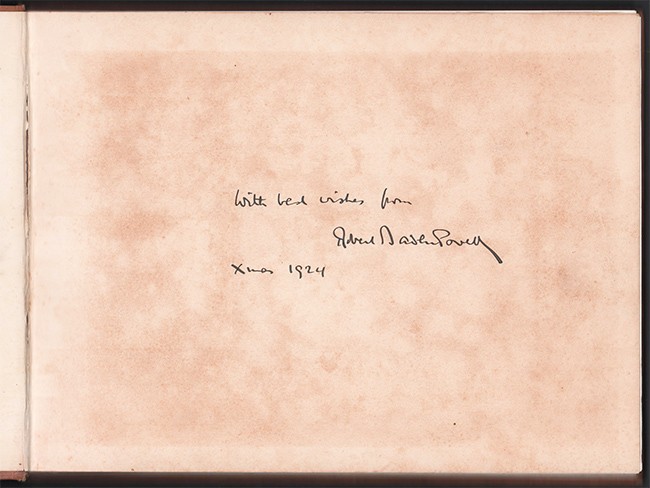 With best wishes from
Robert Baden Powell
Xmas 1924